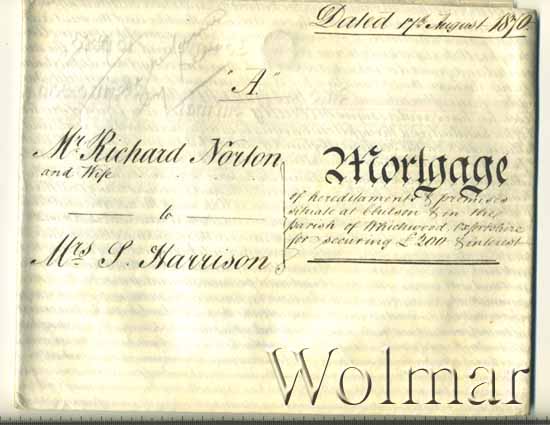 Dated 17th August 1870.
"A."
Mr. Richard Norton
and Wife
to
Mrs S. Harrison
Mortgage
of hereditaments & premises
situate at Chilson & in the
parish of Whichwood Oxfordshire
for securing £200 & interest
Wolmar